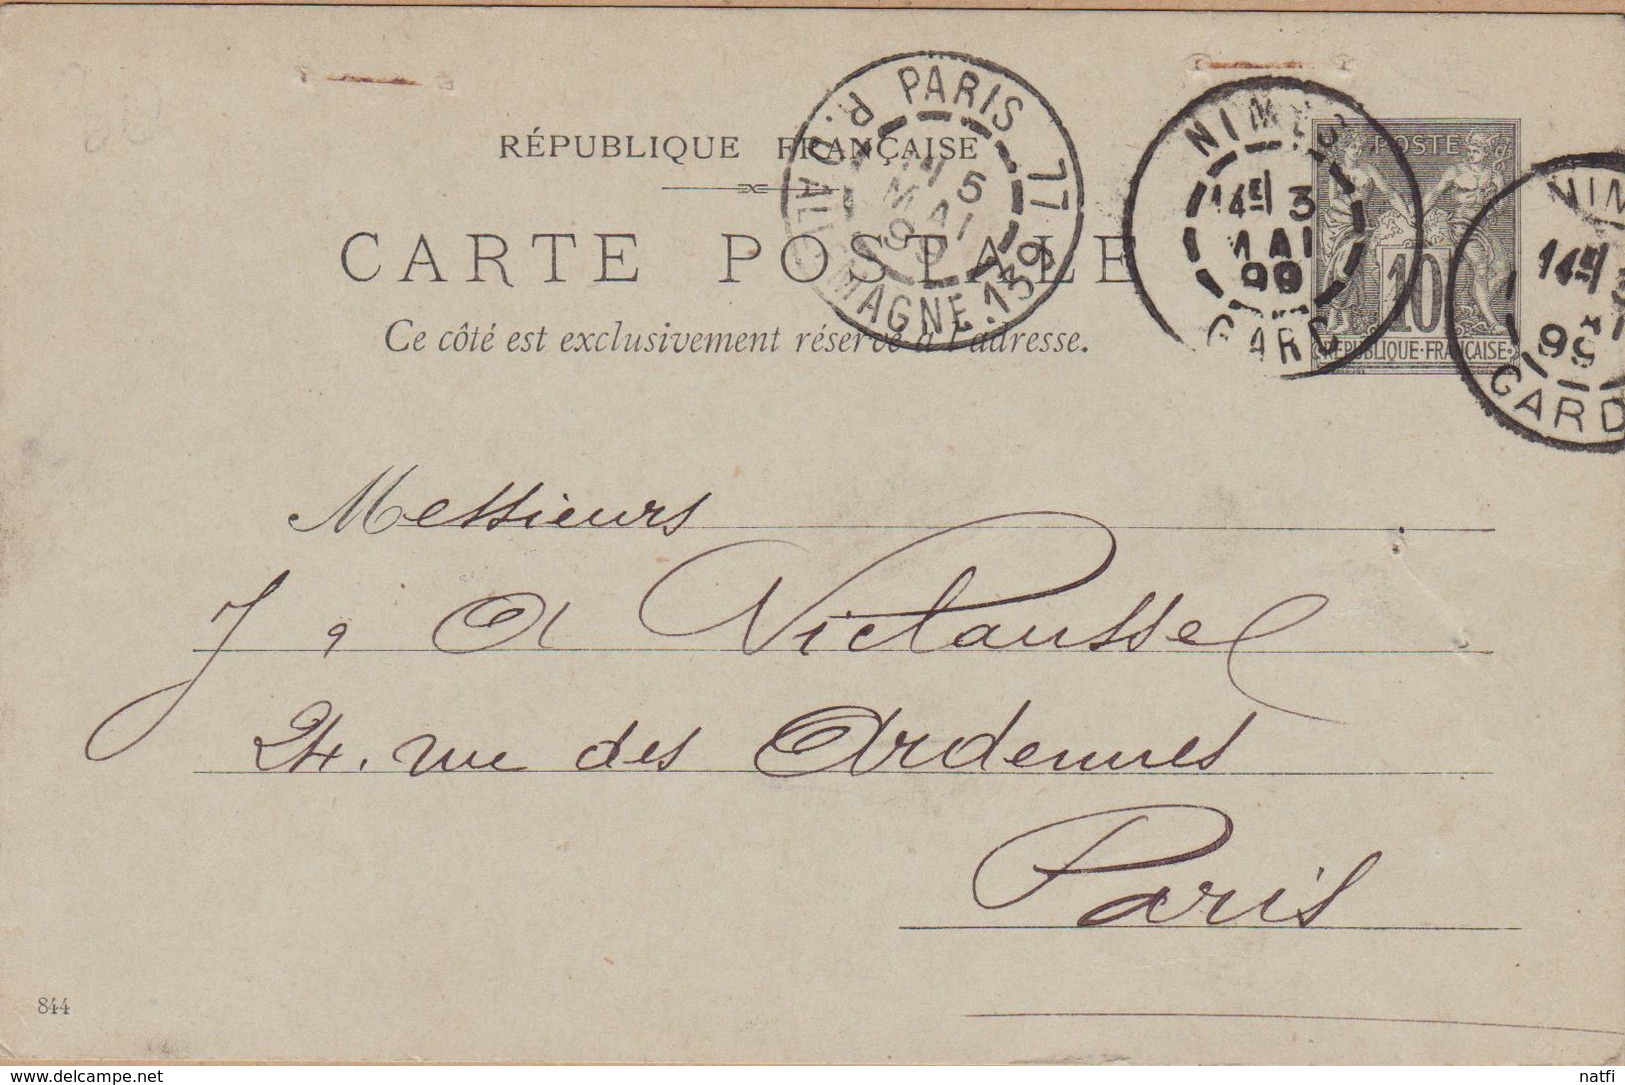 RÉPUBLIQUE FRANÇAISE
CARTE POSTALE
Ce côté est exclusivement réservé à l'adresse.
PARIS 77
R. D'ALLEMAGNE. 139
5
MAI
99
NIMES
14E 3
MAI
99
GARD
POSTE
10
REPUBLIQUE·FRANÇAISE
NIM
14E
99
GARD
Messieurs
J & A Viclausse
24. rue des Ardennes
Paris
844
www.delcampe.net
natfi